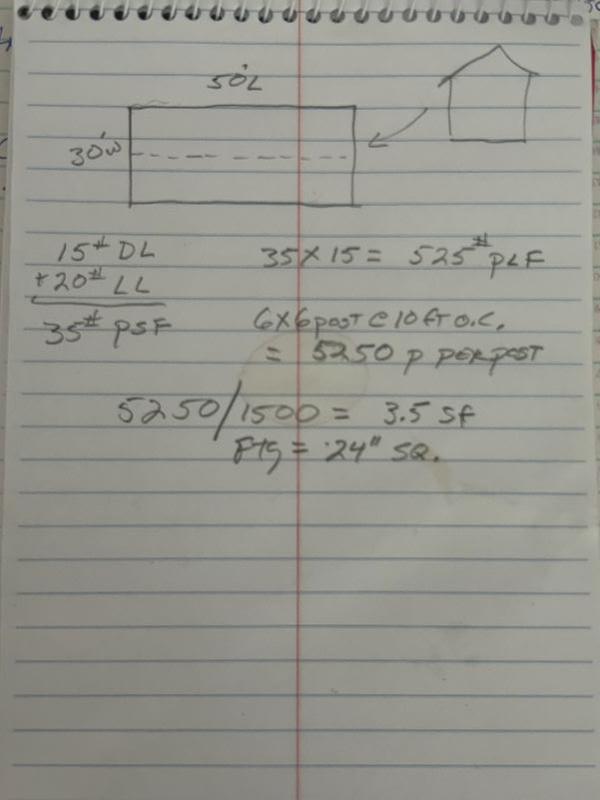 50'L
30'W
15# DL
+20# LL
35# PSF
35 x 15 = 525# PLF
6x6 post @ 10 FT O.C.
= 5250 p PER POST
5250/1500 = 3.5 SF
FTG = 24" SQ.